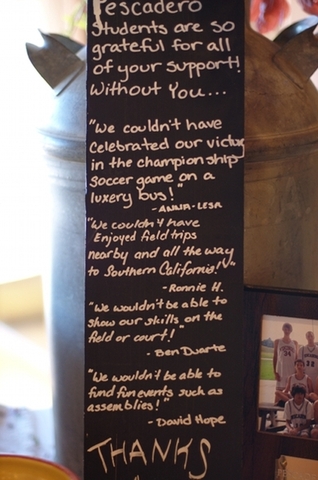 Pescadero
Students are so
grateful for all
of your support!
Without You...
"We couldn't have
Celebrated our victury
in the championship
soccer game on a
luxery bus!"
-ANNA-LESA
"We couldn't have
Enjoyed field trips
nearby and all the way
to Southern California!"
-Ronnie H.
"We wouldn't be able to
show our skills on the
field or court!"
-Ben Duarte
"We wouldn't be able to
fund fun events such as
assemblies!"
-David Hope
THANKS